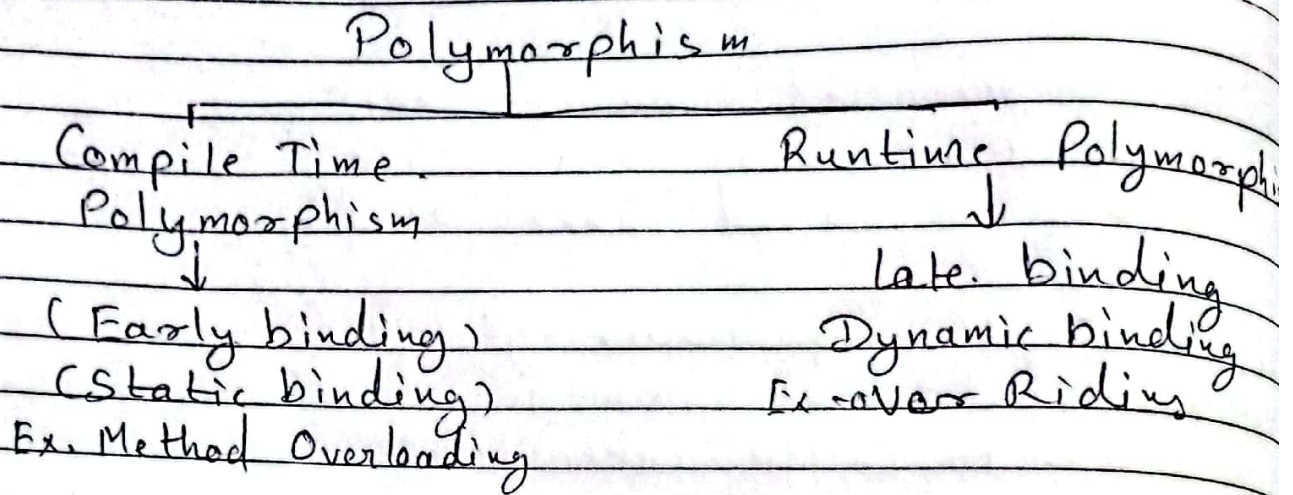 Polymorphism
Compile Time.
Polymorphism
(Early binding)
(Static binding)
Ex. Method Overloading
Runtime Polymorphi
Late. binding
Dynamic binding
Ex - over Riding